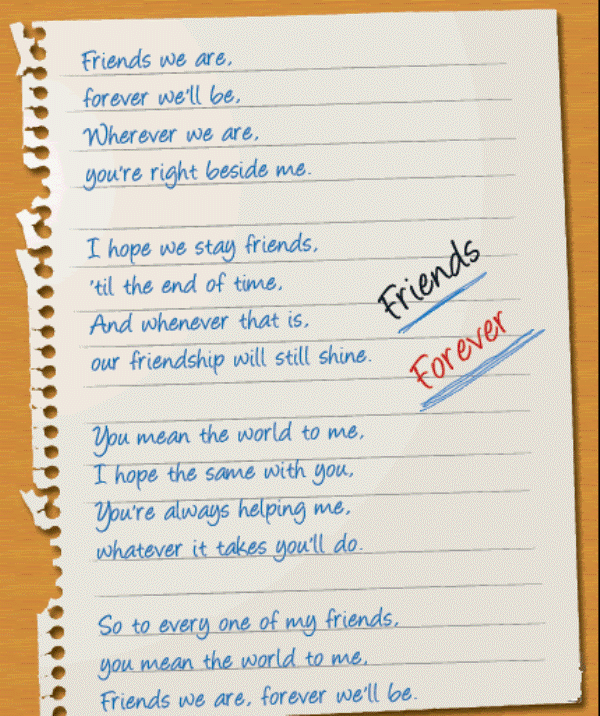 Friends we are,
forever we'll be,
Wherever we are,
you're right beside me.
I hope we stay friends,
'til the end of time,
And whenever that is,
our friendship will still shine.
Friends
Forever
You mean the world to me,
I hope the same with you,
You're always helping me,
whatever it takes you'll do.
So to every one of my friends,
you mean the world to me,
Friends we are, forever we'll be.